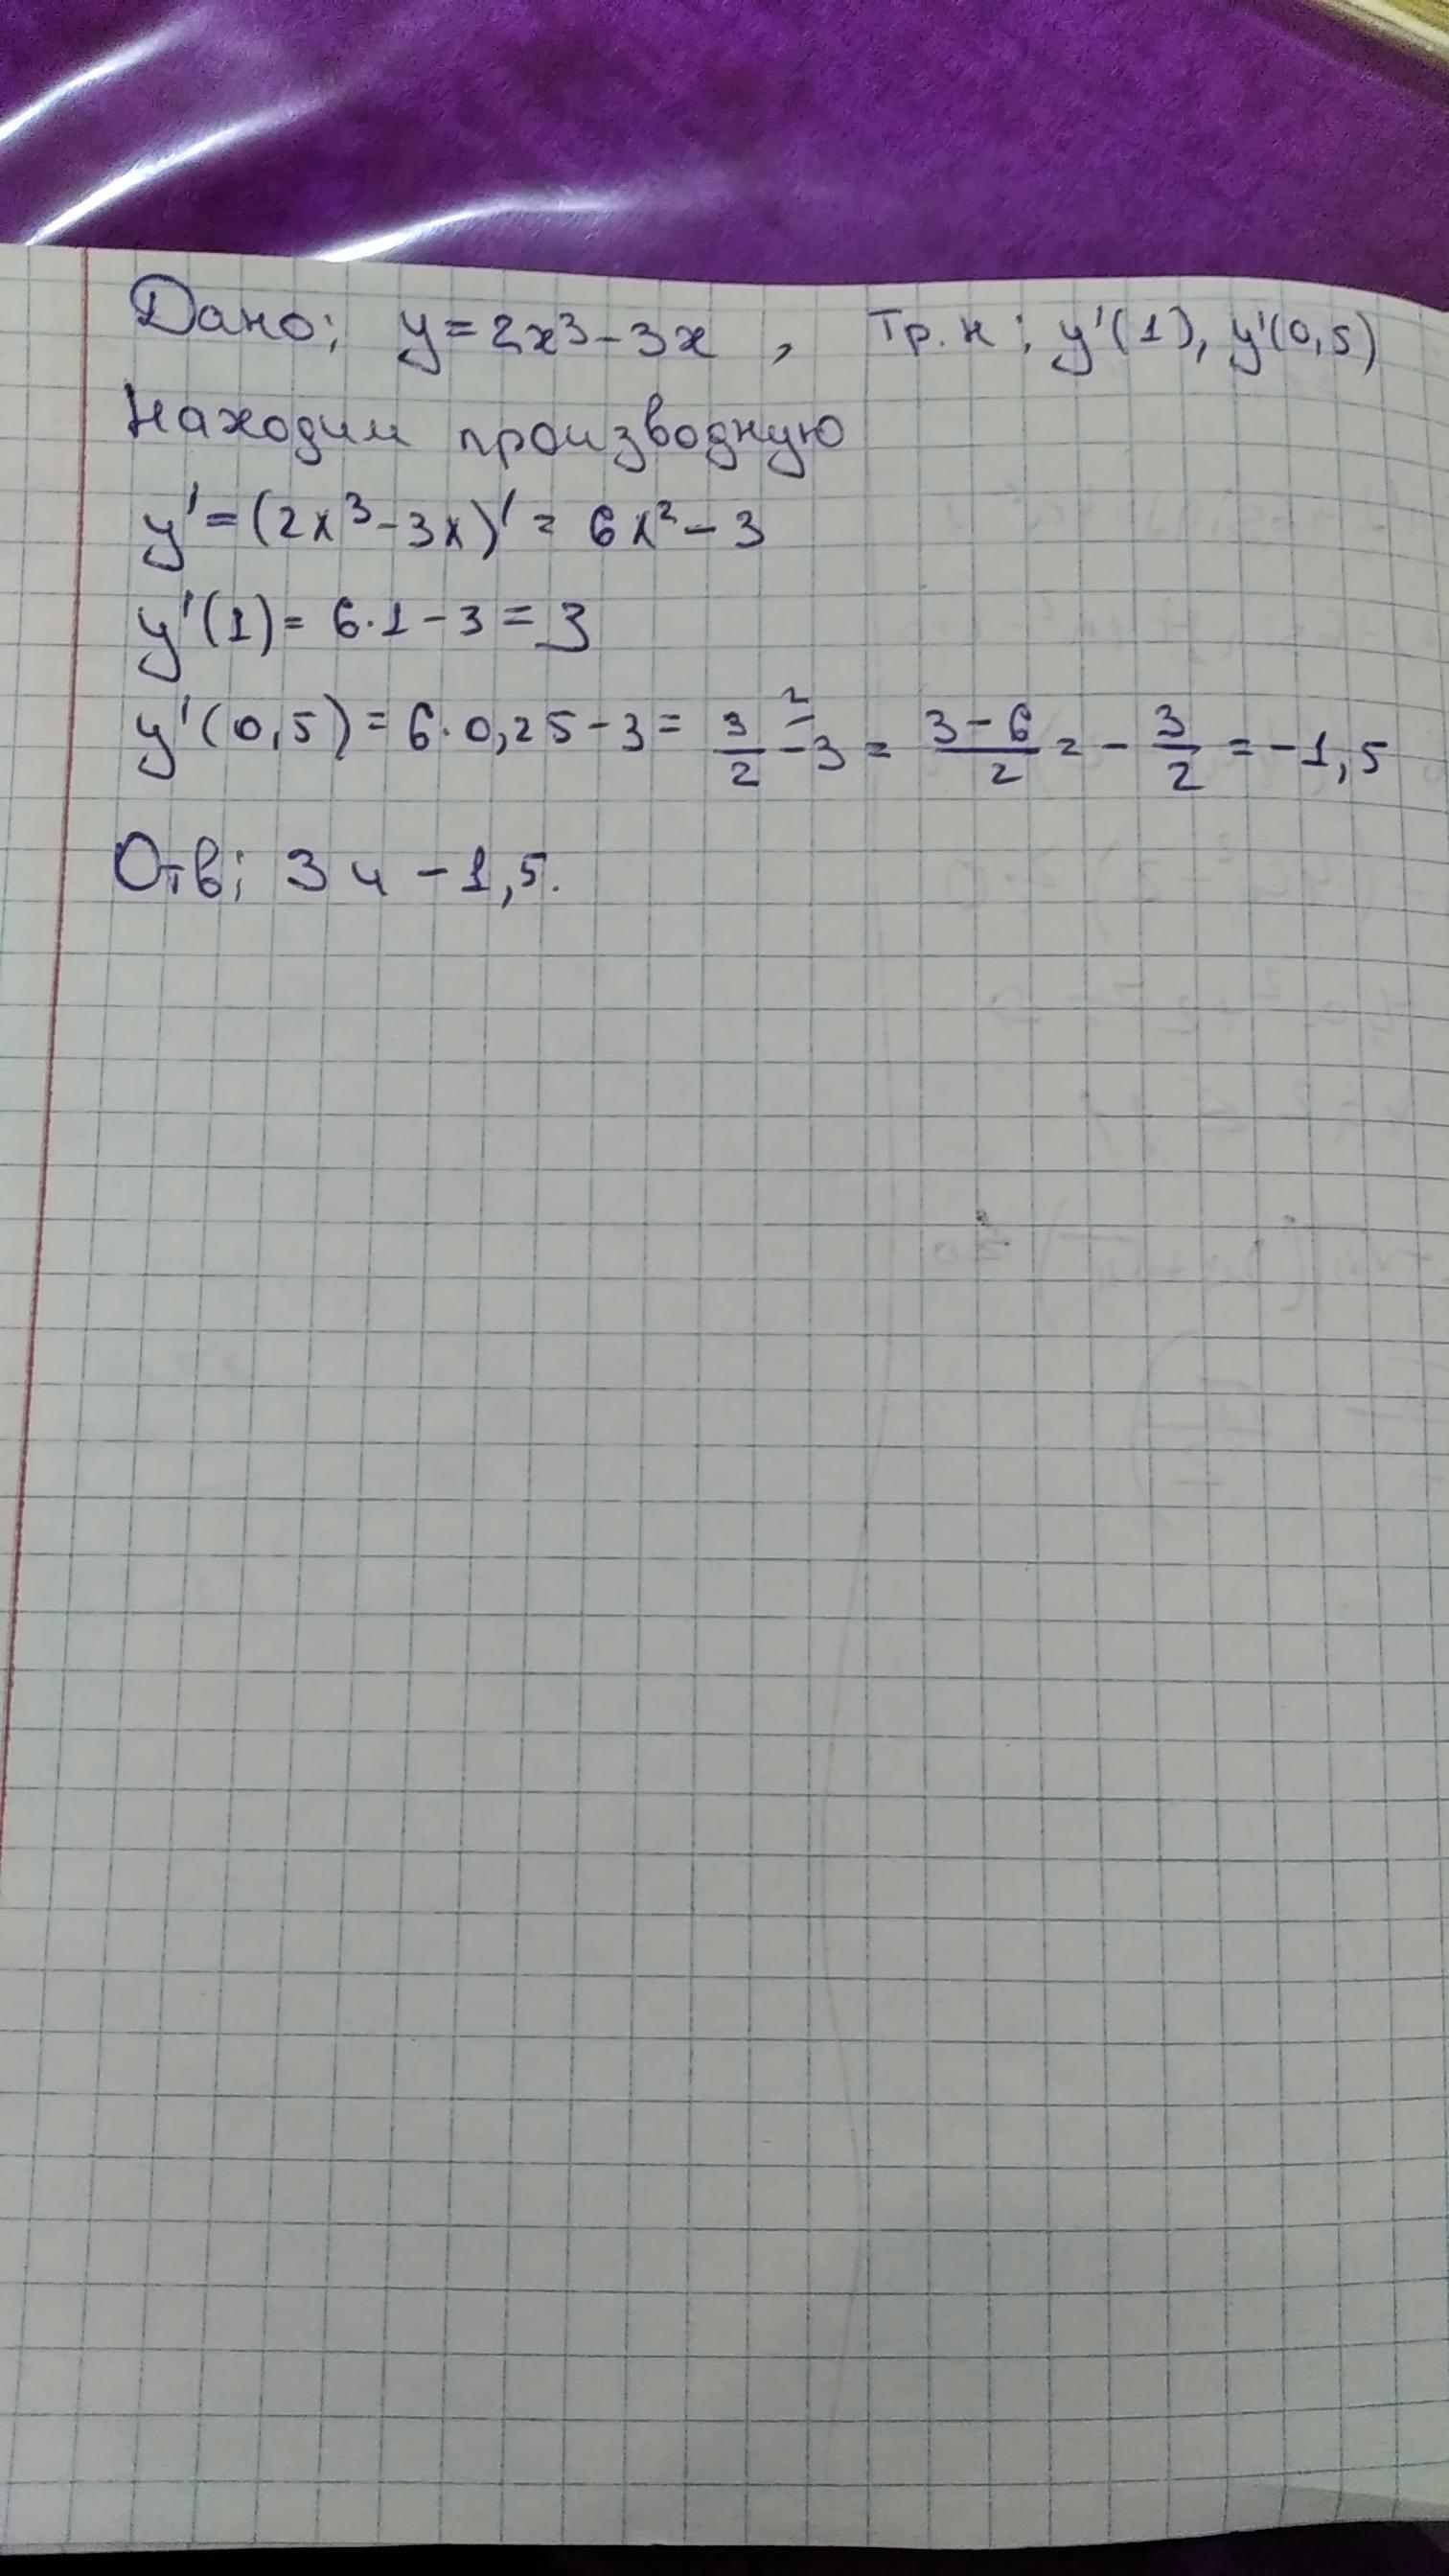 Дано; y = 2x³ - 3x , Тр. н: y'(1), y'(0,5)
Находим производную
y' = (2x³ - 3x)' = 6x² - 3
y'(1) = 6·1 - 3 = 3
y'(0,5) = 6·0,25 - 3 = 3/2 - 3 = (3 - 6)/2 = - 3/2 = -1,5
Отв; 3 и -1,5.